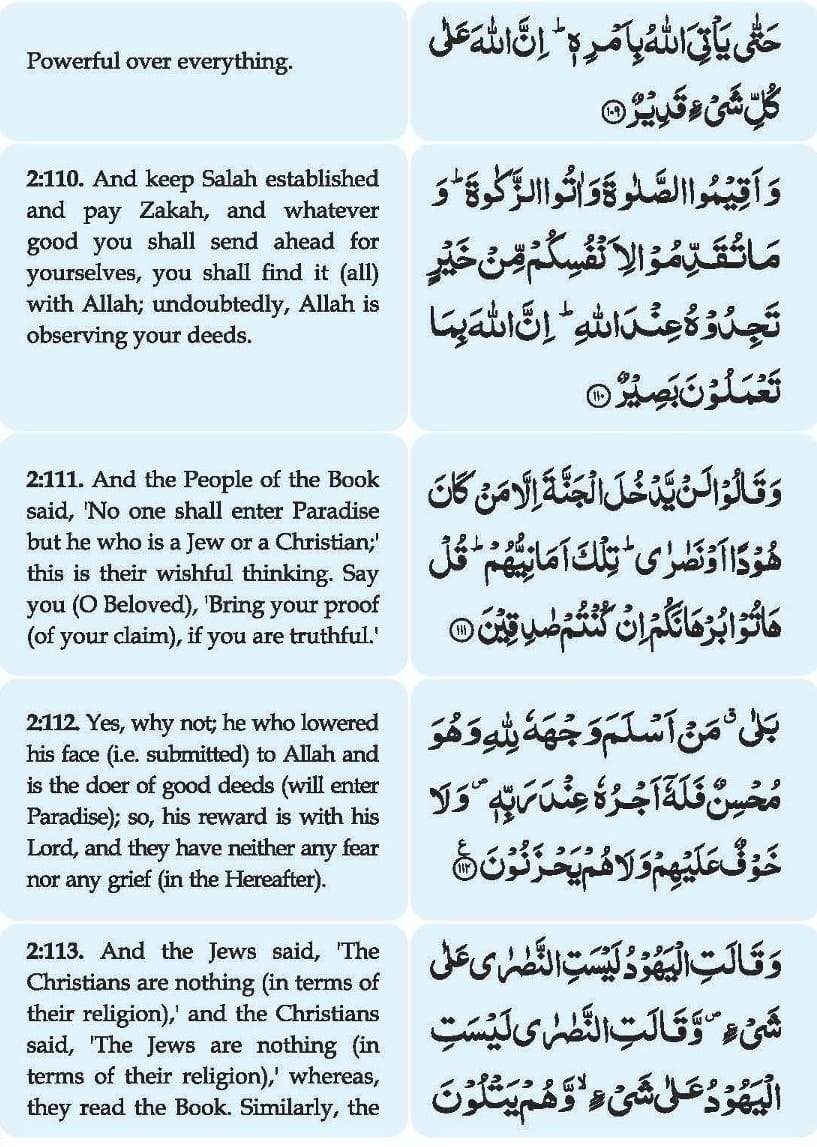 Powerful over everything.
حَتّٰى يَاْتِيَ اللّٰهُ بِاَمْرِهٖ ؕ اِنَّ اللّٰهَ عَلٰى
كُلِّ شَىْءٍ قَدِيْرٌ ۝۱۰۹
2:110. And keep Salah established
and pay Zakah, and whatever
good you shall send ahead for
yourselves, you shall find it (all)
with Allah; undoubtedly, Allah is
observing your deeds.
وَ اَقِيْمُوا الصَّلٰوةَ وَ اٰتُوا الزَّكٰوةَ ؕ وَ
مَا تُقَدِّمُوْا لِاَنْفُسِكُمْ مِّنْ خَيْرٍ
تَجِدُوْهُ عِنْدَ اللّٰهِ ؕ اِنَّ اللّٰهَ بِمَا
تَعْمَلُوْنَ بَصِيْرٌ ۝۱۱۰
2:111. And the People of the Book
said, 'No one shall enter Paradise
but he who is a Jew or a Christian;'
this is their wishful thinking. Say
you (O Beloved), 'Bring your proof
(of your claim), if you are truthful.'
وَ قَالُوْا لَنْ يَّدْخُلَ الْجَنَّةَ اِلَّا مَنْ كَانَ
هُوْدًا اَوْ نَصٰرٰى ؕ تِلْكَ اَمَانِيُّهُمْ ؕ قُلْ
هَاتُوْا بُرْهَانَكُمْ اِنْ كُنْتُمْ صٰدِقِيْنَ ۝۱۱۱
2:112. Yes, why not; he who lowered
his face (i.e. submitted) to Allah and
is the doer of good deeds (will enter
Paradise); so, his reward is with his
Lord, and they have neither any fear
nor any grief (in the Hereafter).
بَلٰى ۗ مَنْ اَسْلَمَ وَجْهَهٗ لِلّٰهِ وَ هُوَ
مُحْسِنٌ فَلَهٗۤ اَجْرُهٗ عِنْدَ رَبِّهٖ ۪ وَ لَا
خَوْفٌ عَلَيْهِمْ وَ لَا هُمْ يَحْزَنُوْنَ ۝۱۱۲ ع
2:113. And the Jews said, 'The
Christians are nothing (in terms of
their religion),' and the Christians
said, 'The Jews are nothing (in
terms of their religion),' whereas,
they read the Book. Similarly, the
وَ قَالَتِ الْيَهُوْدُ لَيْسَتِ النَّصٰرٰى عَلٰى
شَىْءٍ ۪ وَّ قَالَتِ النَّصٰرٰى لَيْسَتِ
الْيَهُوْدُ عَلٰى شَىْءٍ ۙ وَّ هُمْ يَتْلُوْنَ